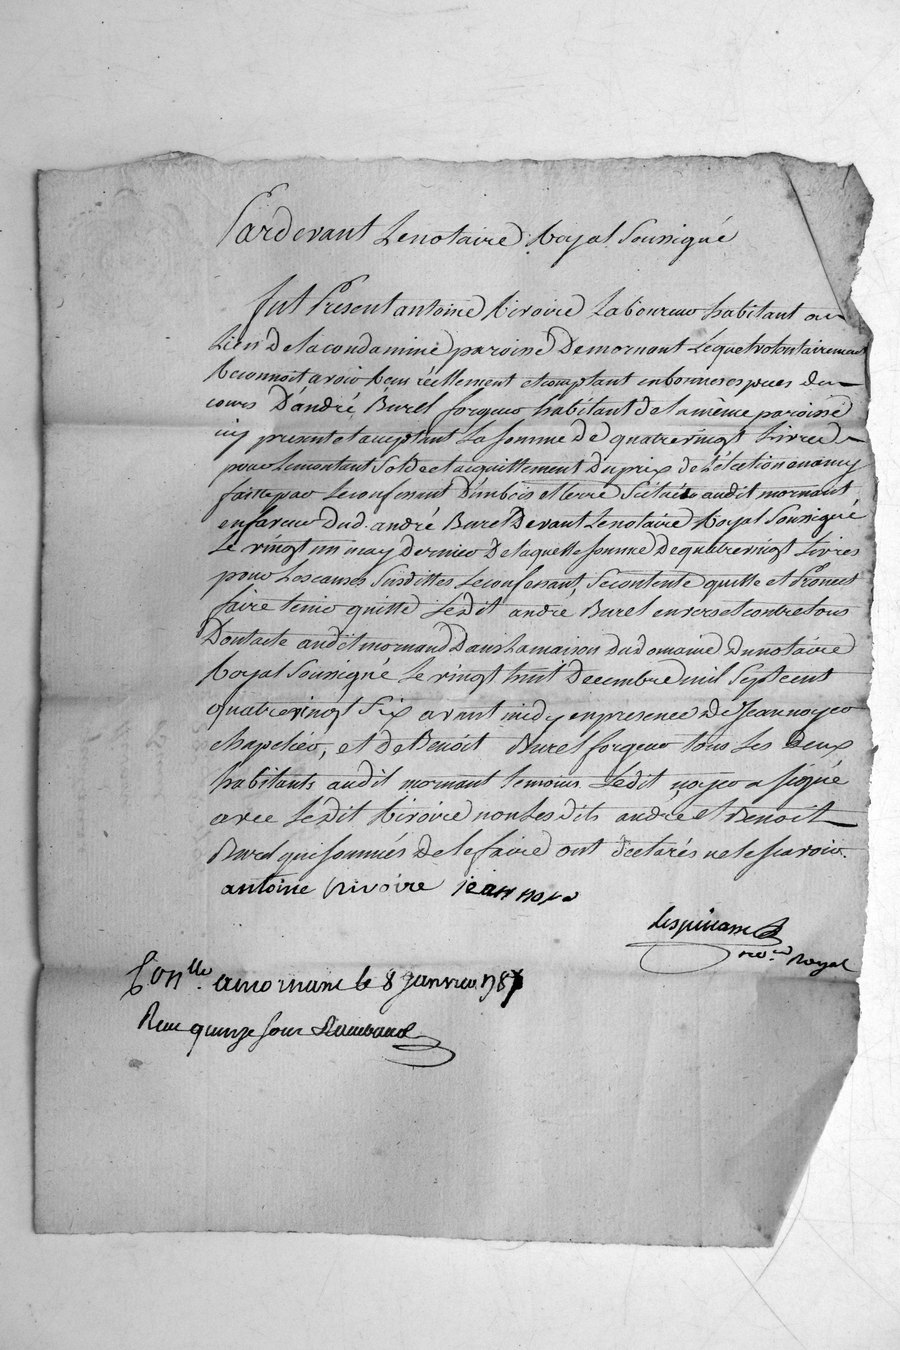 Pardevant Le notaire Royal Soussigné
fut Present antoine Rivoire Laboureur habitant au
Lieu De la condamine paroisse De mornant Lequel volontairement
Reconnoit avoir Recu réellement et comptant en bonnes especes du
cours D'andré Burel forgeur habitant de la même paroisse
icy present et acceptant La somme De quatrevingt Livres
pour Le montant Solde et acquittement Du prix de
faitte par Le confessant D'un bois et terre Scitués audit mornant
en faveur dud. andré Burel Devant Le notaire Royal Soussigné
Le vingt un may Dernier De laquelle somme De quatrevingt Livres
pour Les causes Susdittes Le confessant, Se contente quitte et Promet
faire tenir quitte Ledit andré Burel envers et contre tous
Dont acte audit mornand Dans La maison du domaine Du notaire
Royal Soussigné Le vingt huit Decembre mil Sept cent
quatrevingt Six avant midy en presence De Jean noyer
chapelier, et de Benoit Burel forgeur tous Les Deux
habitants audit mornant temoins Ledit noyer a signé
avec Ledit Rivoire non Les dits andré et Benoit
Burel qui sommés De le faire ont declarés ne le scavoir.
antoine rivoire jean noye
Lespinasse
no.re Royal
Con.lle a mornant le 8 janvier 1787
Recu quinze sous